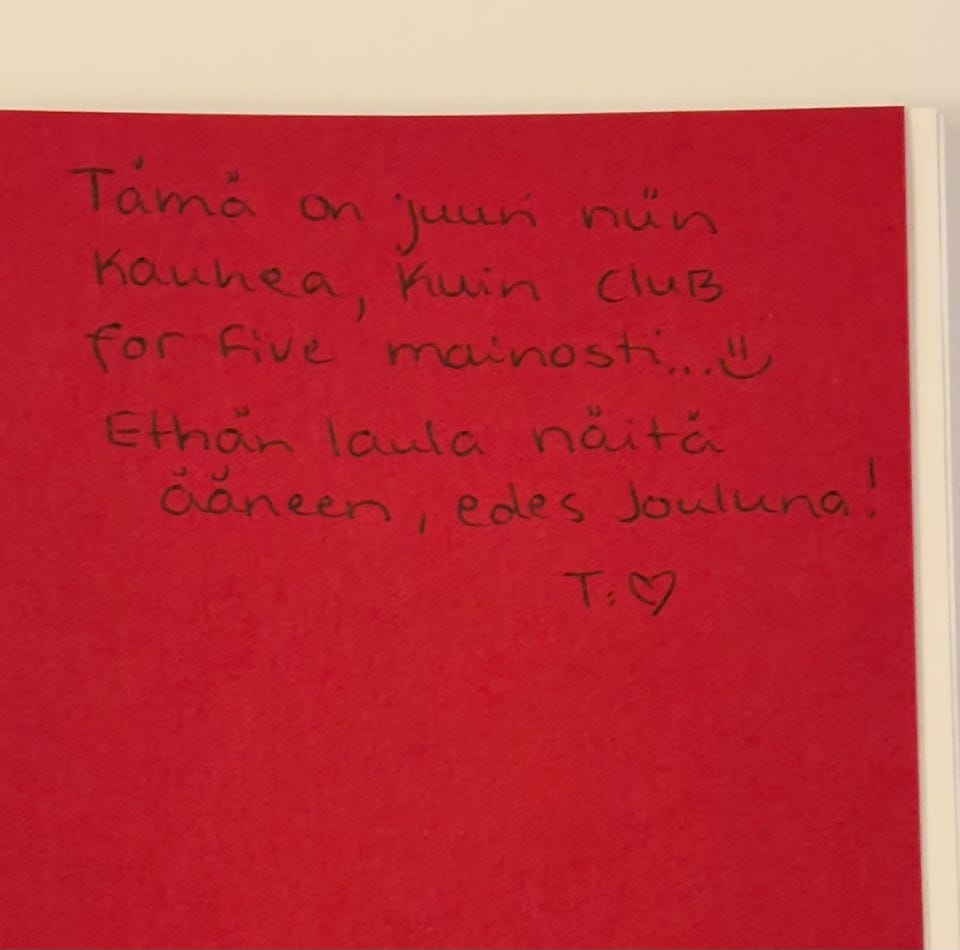 Tämä on juuri niin
kauhea, kuin Club
for Five mainosti... :)
Ethän laula näitä
ääneen, edes Jouluna!
T: ♡